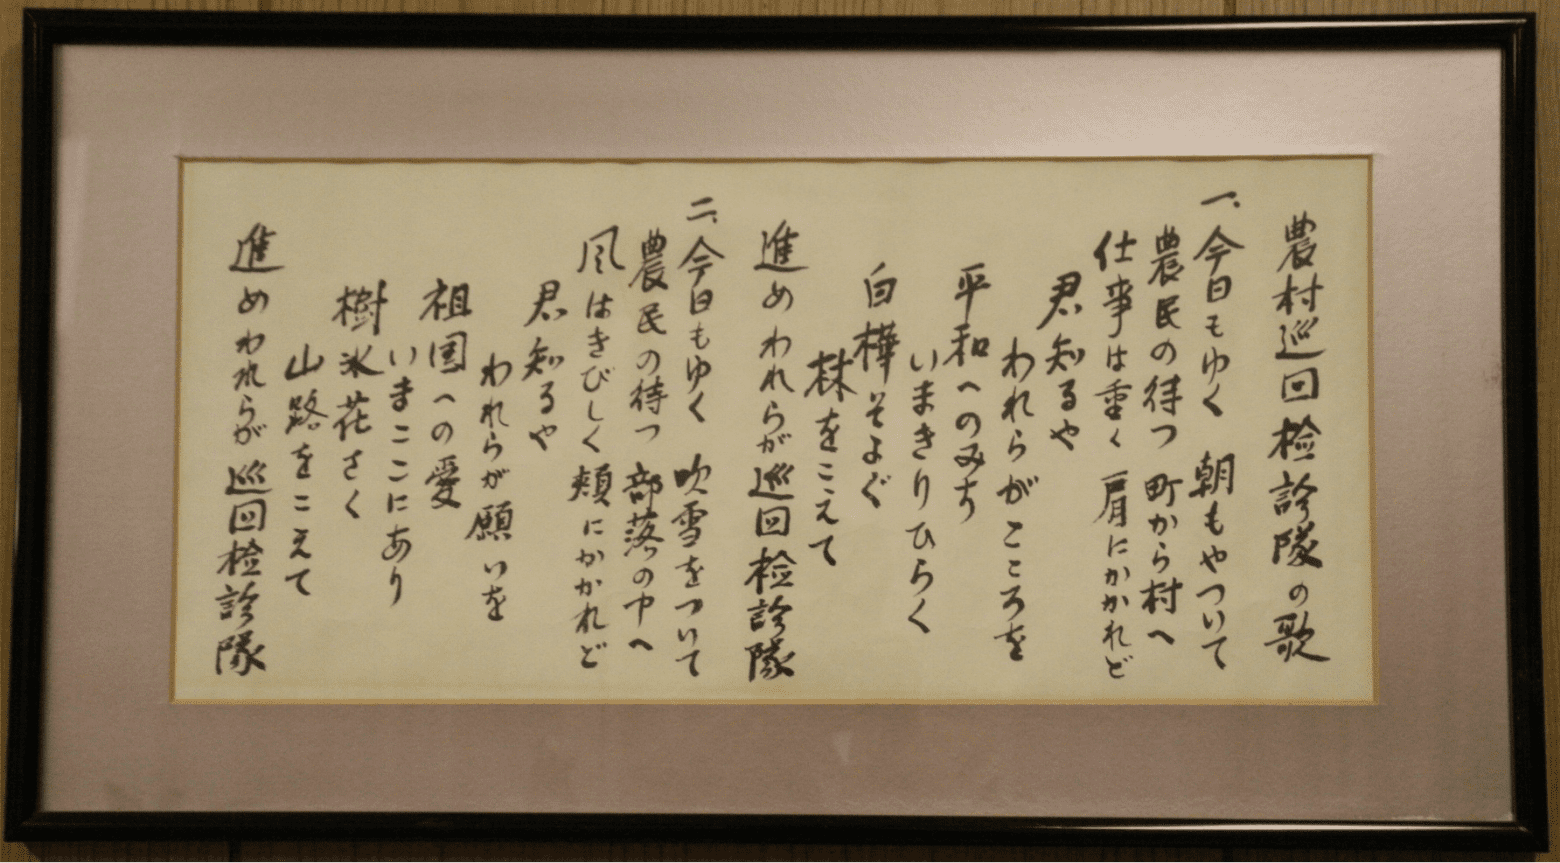 農村巡回検診隊の歌
一、今日もゆく 朝もやついて
農民の待つ 町から村へ
仕事は重く 肩にかかれど
君知るや
われらがこころを
平和へのみち
いまきりひらく
白樺そよぐ
林をこえて
進めわれらが巡回検診隊
二、今日もゆく 吹雪をついて
農民の待つ 部落の中へ
風はきびしく 頬にかかれど
君知るや
われらが願いを
祖国への愛
いまここにあり
樹氷花さく
山路をこえて
進めわれらが巡回検診隊